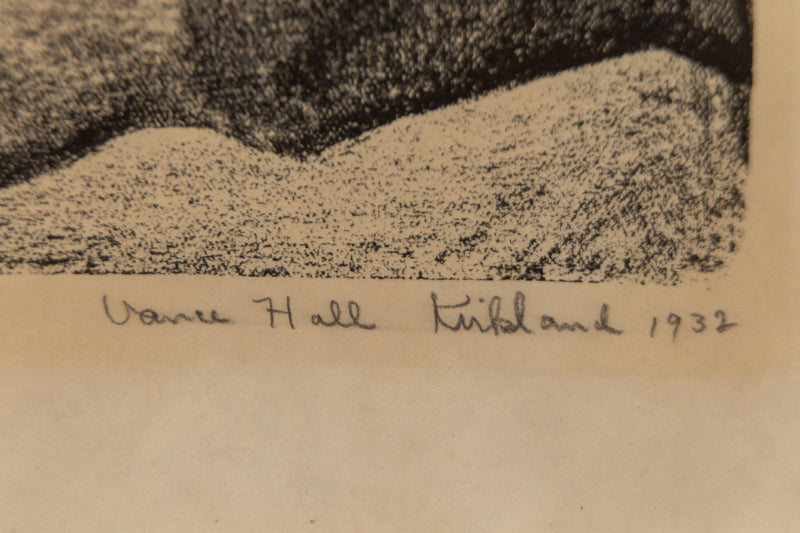 Vance Hall Kirkland 1932